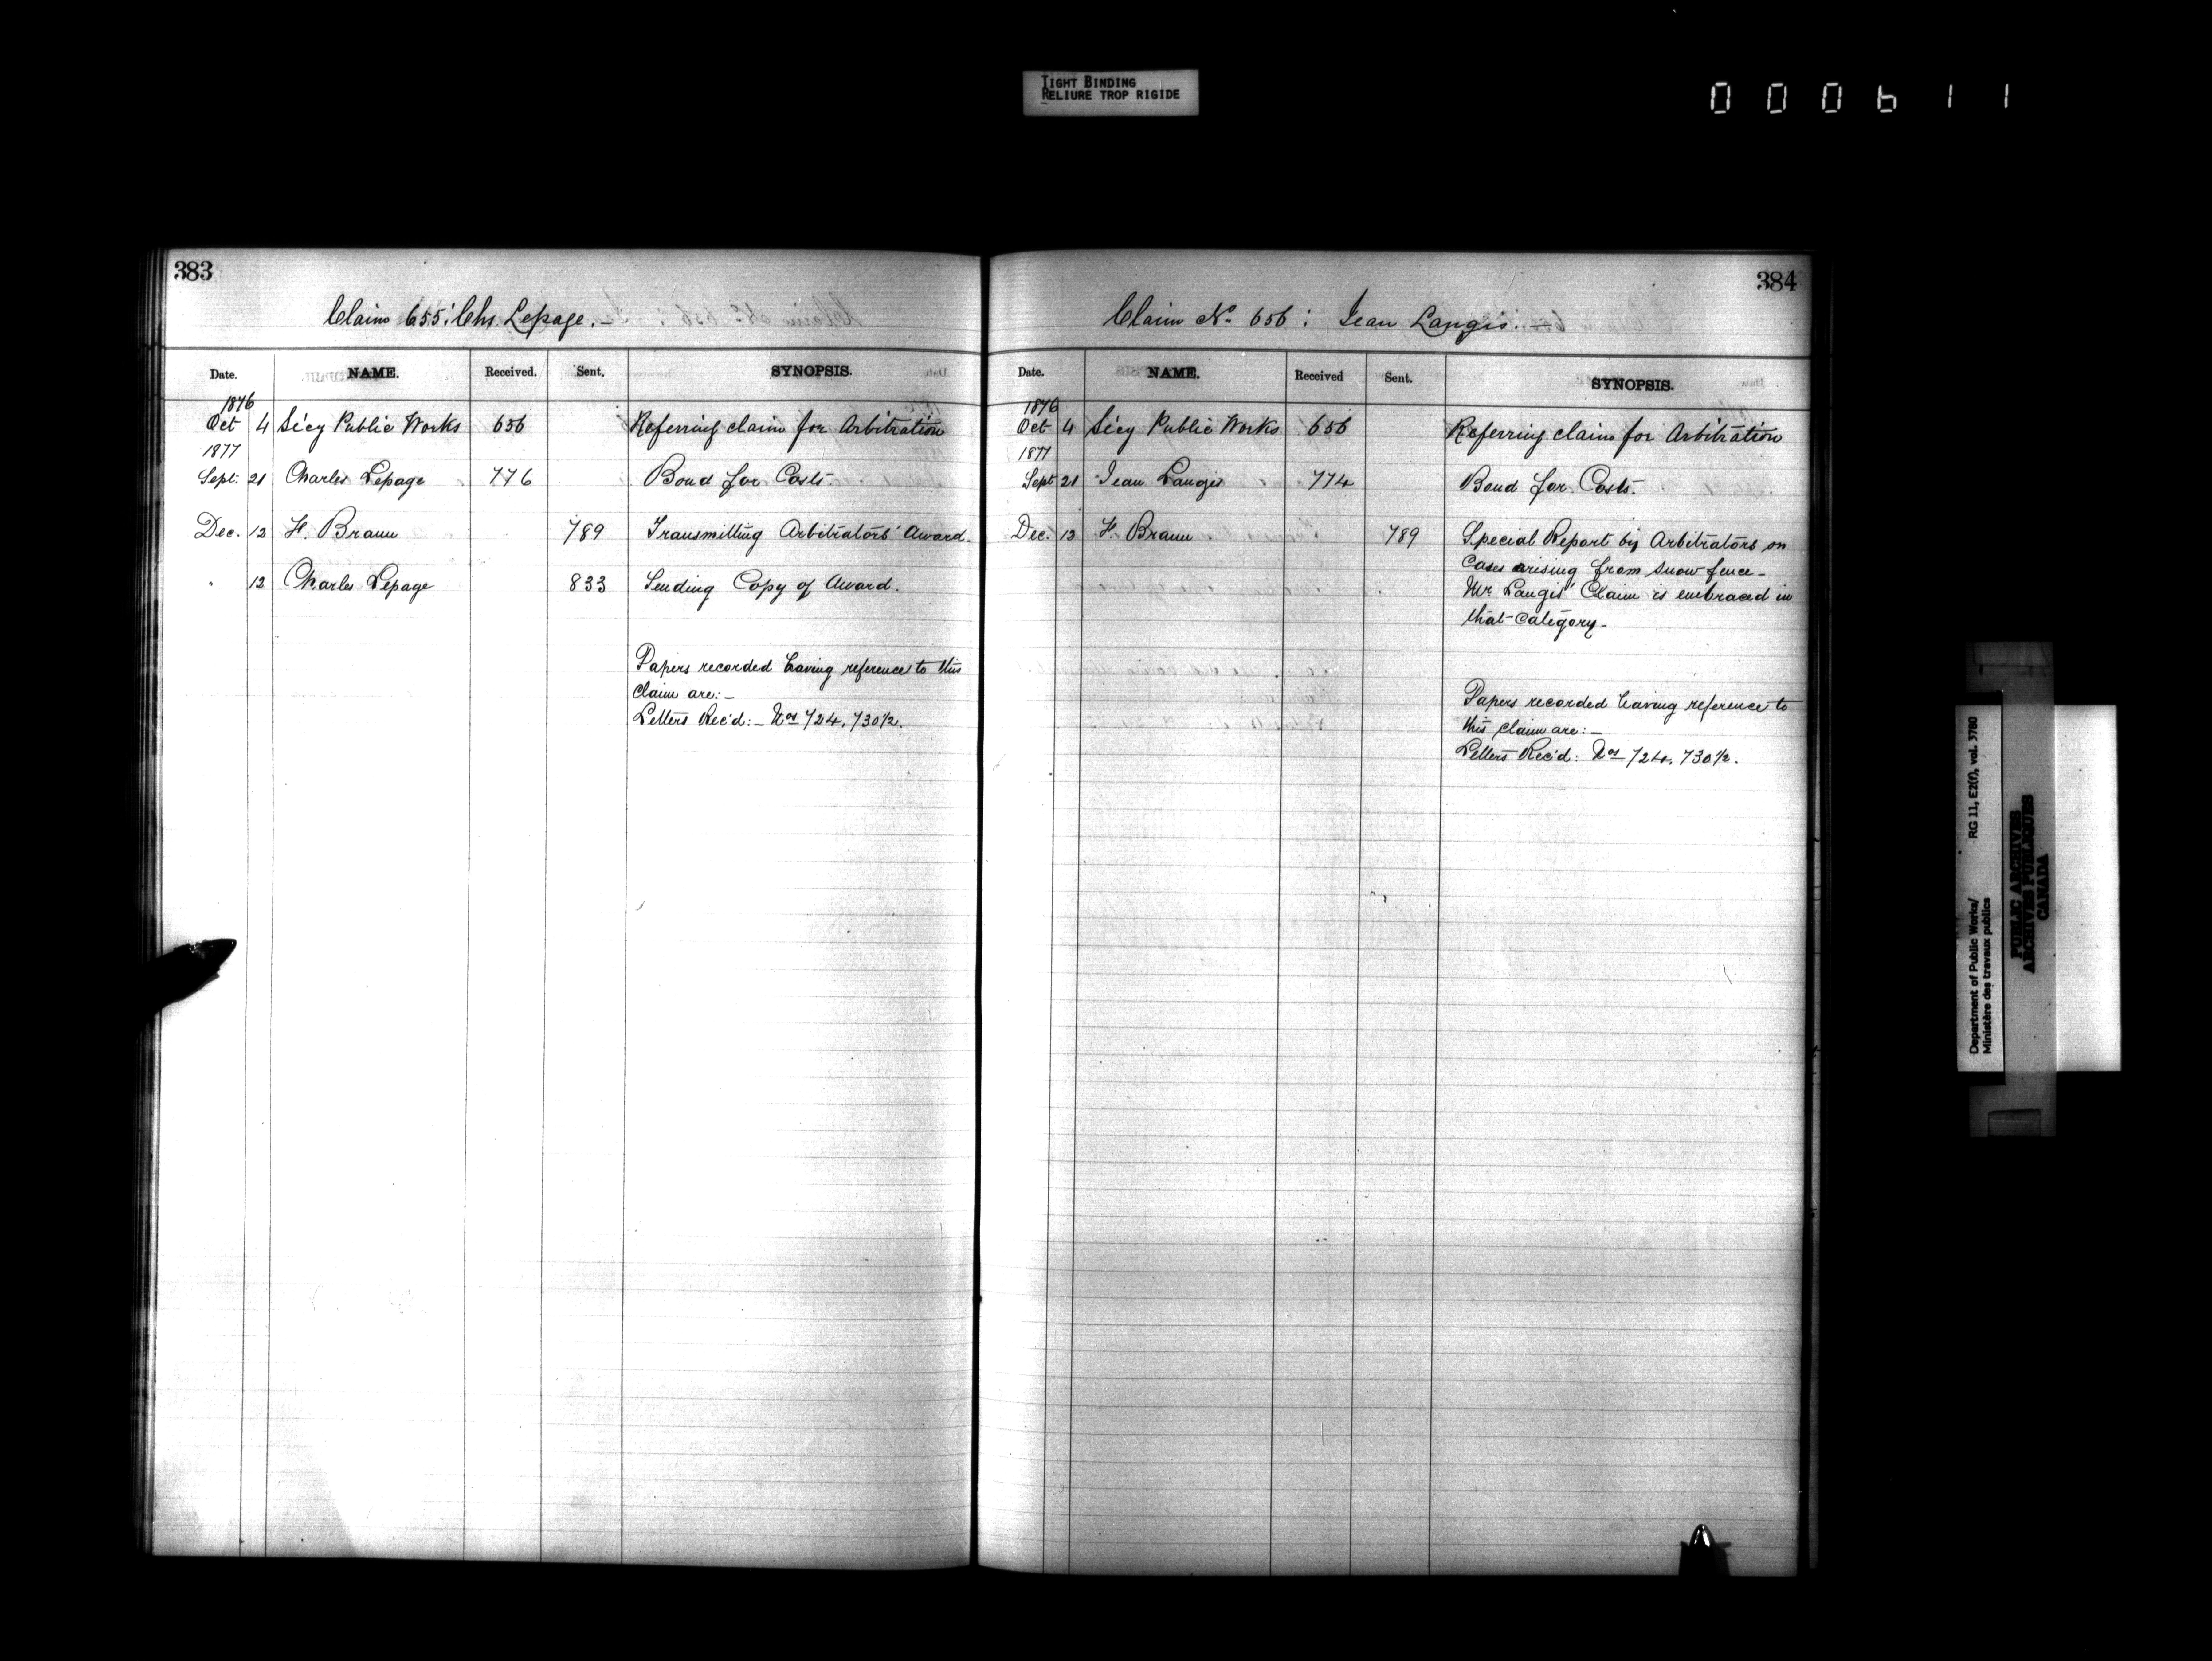 TIGHT BINDING
RELIURE TROP RIGIDE
000611
383
Claim 655: Chs Lepage. —
Date. NAME. Received. Sent. SYNOPSIS.
1876
Oct 4 Sécy Public Works 656 Referring claim for Arbitration
1877
Sept. 21 Charles Lepage 776 Bond for Costs.
Dec. 12 F. Braun 789 Transmitting Arbitrators' Award.
" 12 Charles Lepage 833 Sending Copy of Award.
Papers recorded having reference to this
claim are: —
Letters Rec'd: — Nos 724, 730½.
384
Claim No 656: Jean Langis. —
Date. NAME. Received Sent. SYNOPSIS.
1876
Oct 4 Sécy Public Works 656 Referring claim for Arbitration
1877
Sept 21 Jean Langis 774 Bond for Costs.
Dec. 12 F. Braun 789 Special Report by Arbitrators on
Cases arising from snow fence —
Mr. Langis' Claim is embraced in
that category —
Papers recorded having reference to
this claim are: —
Letters Rec'd: Nos 724, 730½.
Department of Public Works/ RG 11, E2(f), vol. 3780
Ministère des travaux publics
PUBLIC ARCHIVES
ARCHIVES PUBLIQUES
CANADA